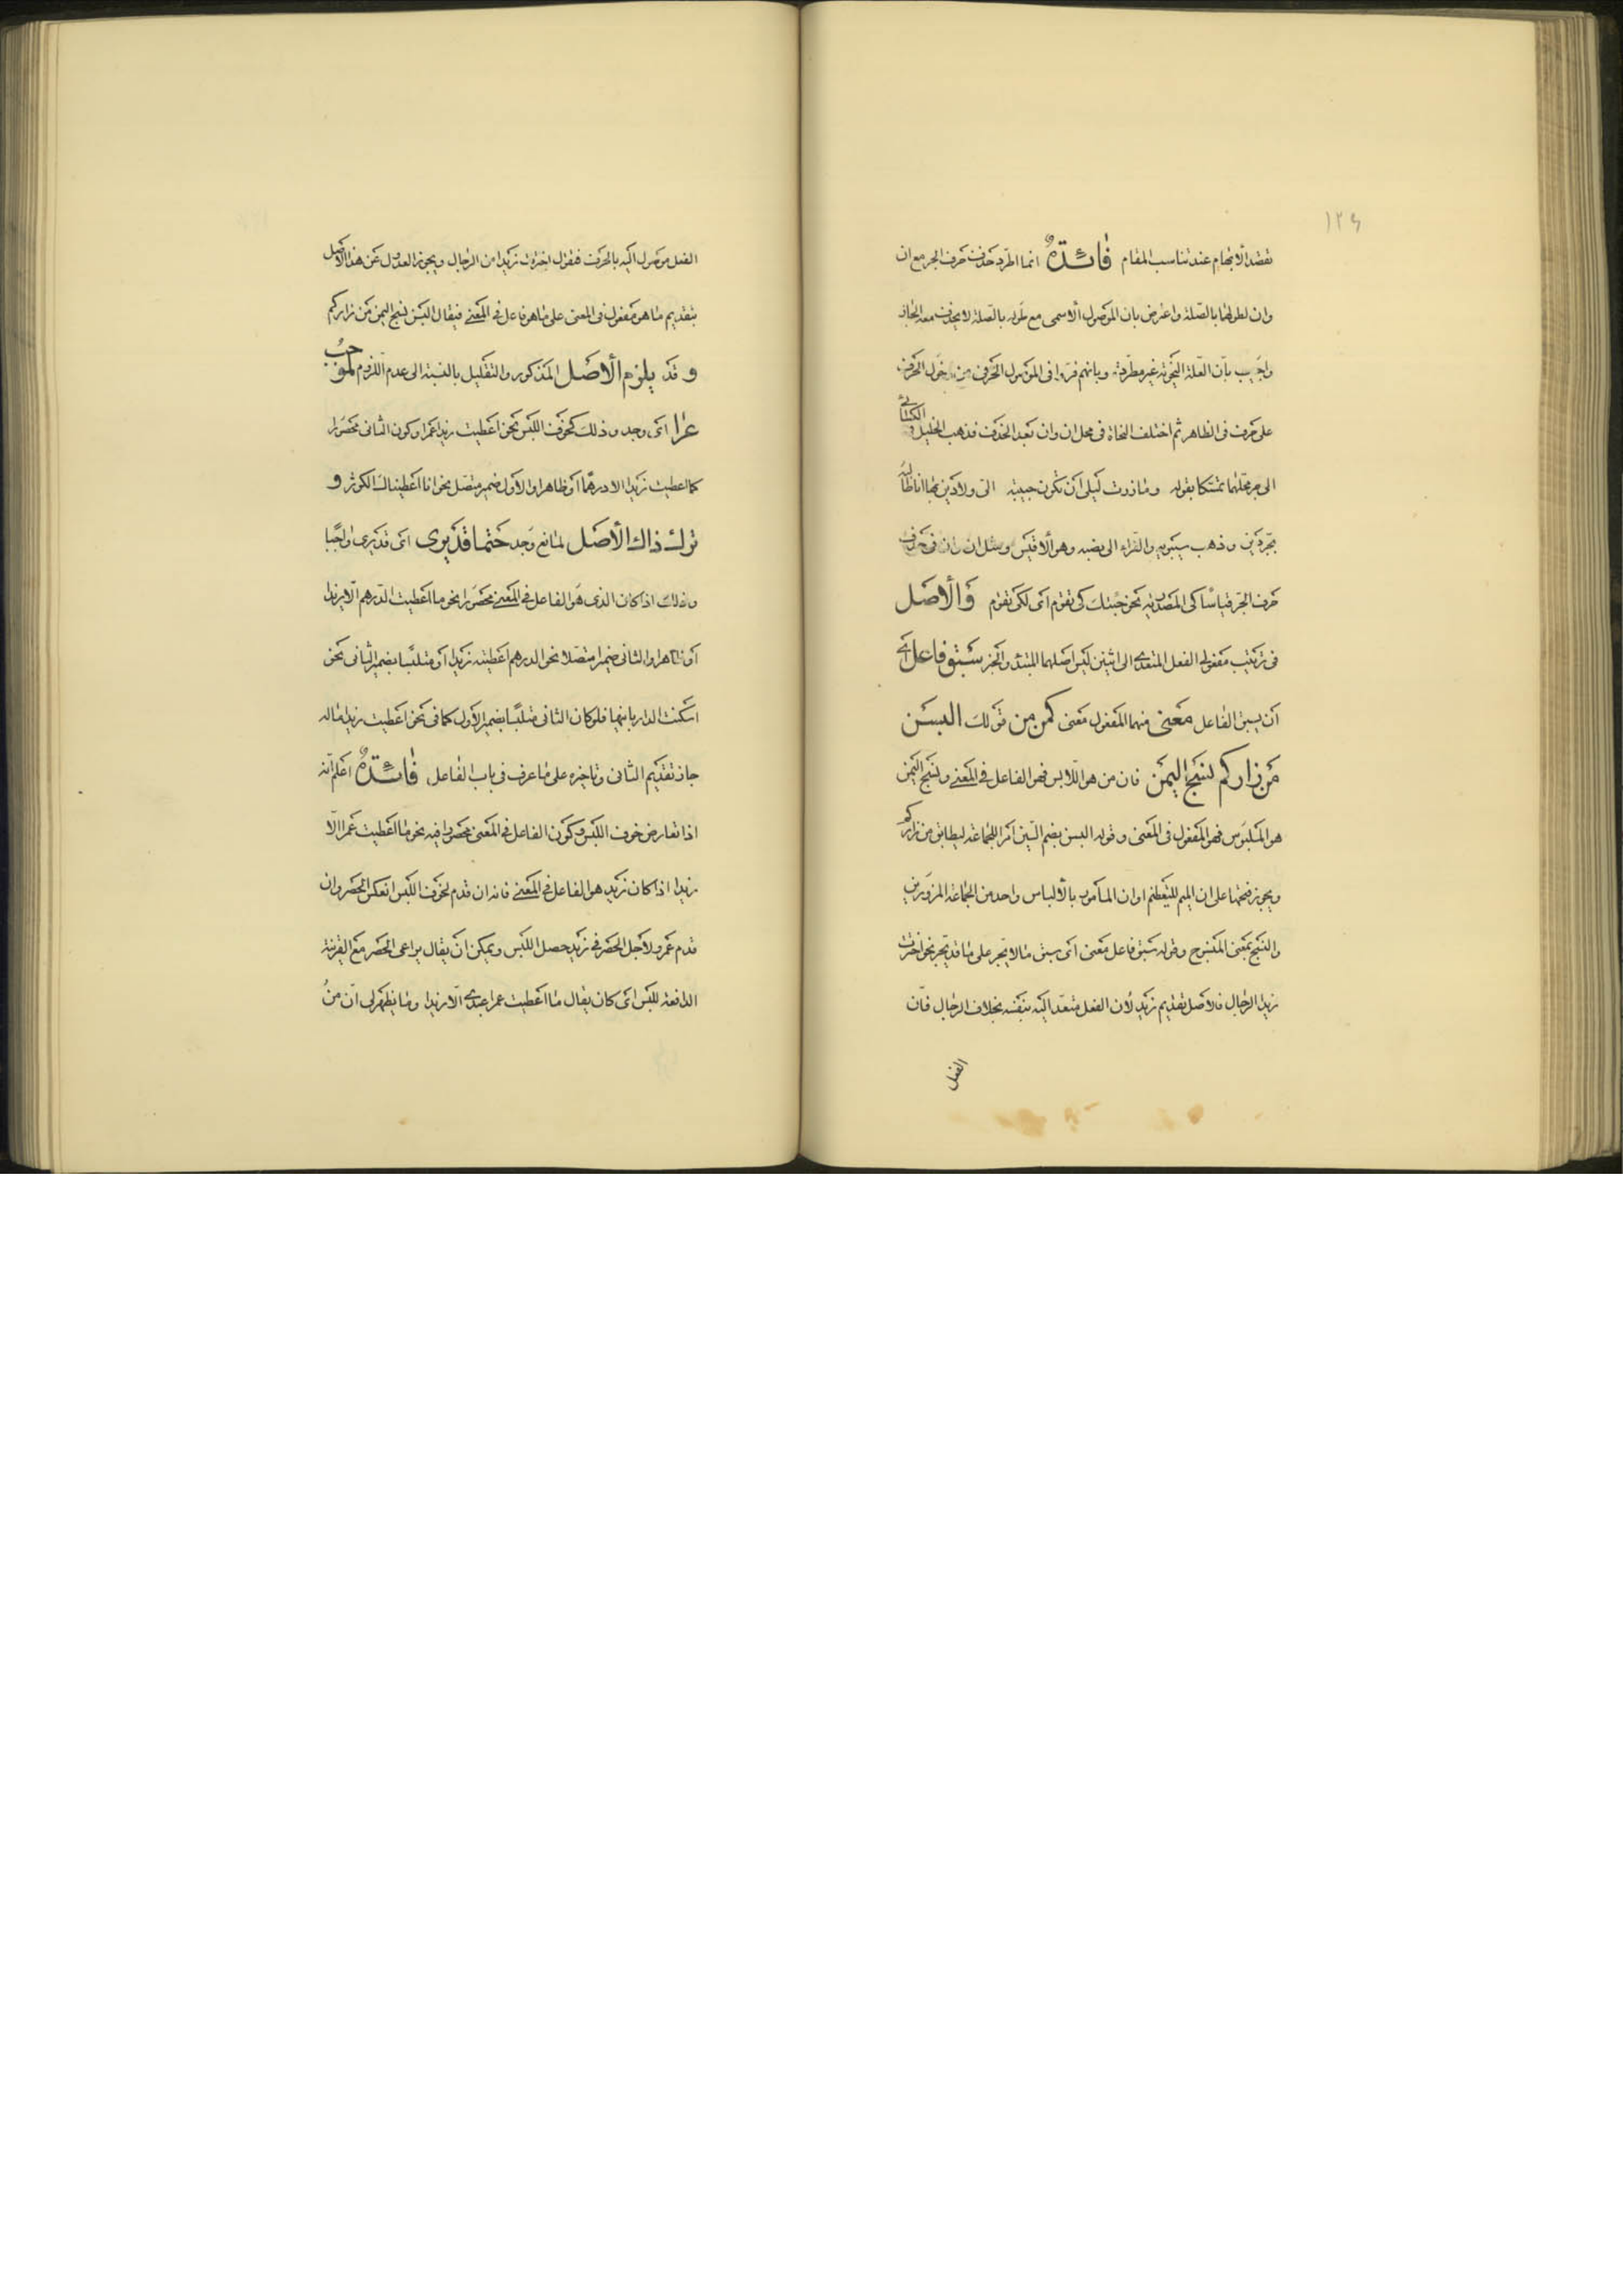 ١٢٤
بقصد الأبهام عند تناسب المقام فائدة انما اطرد حذف حرف الجر مع ان
وان لطولهما بالصلة واعترض بان الموصول الأسمى مع طوله بالصلة لا يحذف معه الجار
واجيب بان العلة النحوية غير مطردة وبانهم فروا فى الموصول الحرفى من دخول الحرف
على حرف فى الظاهر ثم اختلف النحاة فى محل ان وان بعد الحذف فذهب الخليل والكسائى
الى جر محلهما تمسكا بقوله وما زرت ليلى ان تكون حبيبة الى ولا دين بها انا طالبه
بجر دين وذهب سيبويه والفراء الى نصبه وهو الأقيس ومثل ان وان فى حذف
حرف الجر قياسا كى المصدرية نحو جئتك كى تقوم اى لكى تقوم والأصل
فى ترتيب مفعولى الفعل المتعدى الى اثنين ليس اصلهما المبتدء والخبر سبق فاعل اى
ان يسبق الفاعل معنى منهما المفعول معنى كمن من قولك البسن
من زاركم نسج اليمن فان من هو اللابس فهو الفاعل فى المعنى ونسج اليمن
هو الملبوس فهو المفعول فى المعنى وقوله البسن بضم السين امرا للجماعة ليطابق من زاركم
ويجوز فتحها على ان الميم للتعظيم او ان المأمور بالألباس واحد من الجماعة المزورين
والنسج بمعنى المنسوج وقوله سبق فاعل معنى اى سبق ما لا يجر على ما قد يجر نحو اخترت
زيدا الرجال فالأصل تقديم زيد لأن الفعل متعد اليه بنفسه بخلاف الرجال فان
الفعل
الفعل موصول اليه بالحرف فتقول اخترت زيدا من الرجال ويجوز العدول عن هذا الأصل
بتقديم ما هو مفعول فى المعنى على ما هو فاعل فى المعنى فيقال البسن نسج اليمن من زاركم
وقد يلزم الأصل المذكور والتقليل بالنسبة الى عدم اللزوم لموجب
عرا اى وجد وذلك كخوف اللبس نحو اعطيت زيدا عمرا وكون الثانى محصورا
كما اعطيت زيدا الا درهما او ظاهرا والأول ضمير متصل نحو انا اعطيناك الكوثر و
ترك ذاك الأصل لمانع وجد حتما قد يرى اى قد يرى واجبا
وذلك اذا كان الذى هو الفاعل فى المعنى محصورا نحو ما اعطيت الدرهم الا زيدا
او ظاهرا والثانى ضميرا متصلا نحو الدرهم اعطيته زيدا او متلبسا بضمير الثانى نحو
اسكنت الدار بانيها فلو كان الثانى متلبسا بضمير الأول كما فى نحو اعطيت زيدا ماله
جاز تقديم الثانى وتاخيره على ما عرف فى باب الفاعل فائدة اعلم انه
اذا تعارض خوف اللبس وكون الفاعل فى المعنى محصورا فيه نحو ما اعطيت عمرا الا
زيدا اذا كان زيد هو الفاعل فى المعنى فانه ان قدم لخوف اللبس انعكس الحصر وان
قدم عمرو لأجل الحصر فى زيد حصل اللبس ويمكن ان يقال يراعى الحصر مع القرينة
الدافعة للبس اى كان يقال ما اعطيت عمرا عبدى الا زيدا وما يظهر لى ان من